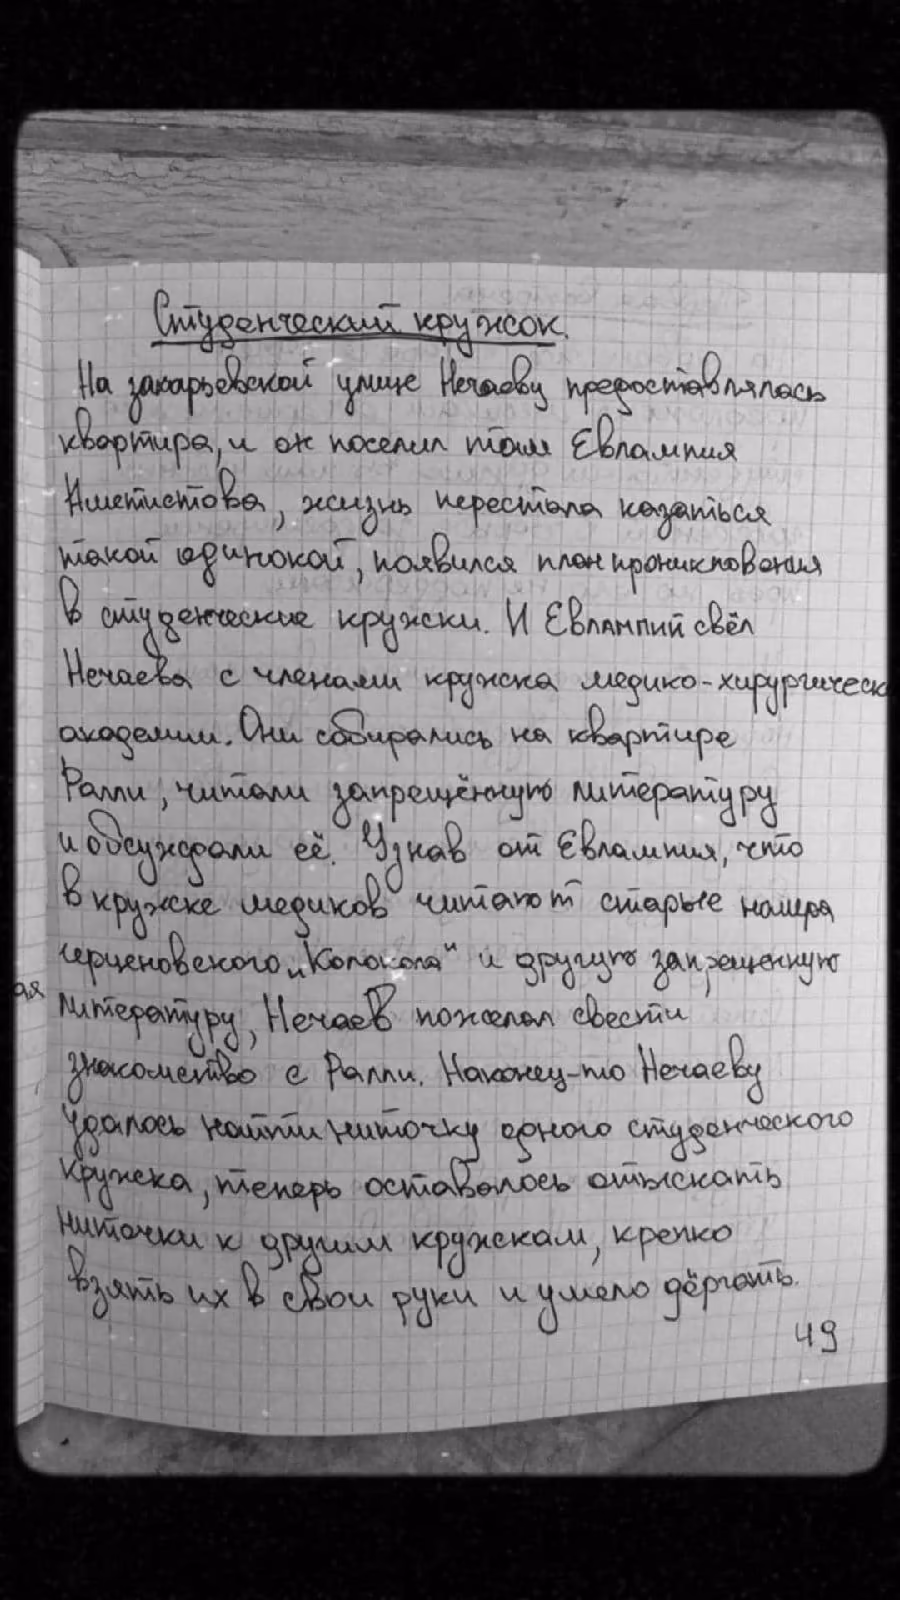 Студенческий кружок.
На захарьевской улице Нечаеву предоставлялась
квартира, и он поселил там Евлампия
Аметистова, жизнь перестала казаться
такой одинокой, появился план проникновения
в студенческие кружки. И Евлампий свёл
Нечаева с членами кружка медико-хирургическ
академии. Они собирались на квартире
Ралли, читали запрещённую литературу
и обсуждали её. Узнав от Евлампия, что
в кружке медиков читают старые номера
герценовского „Колокола“ и другую запрещенную
ая
литературу, Нечаев пожелал свести
знакомство с Ралли. Наконец-то Нечаеву
удалось найти ниточку одного студенческого
кружка, теперь оставалось отыскать
ниточки к другим кружкам, крепко
взять их в свои руки и умело дёргать.
49